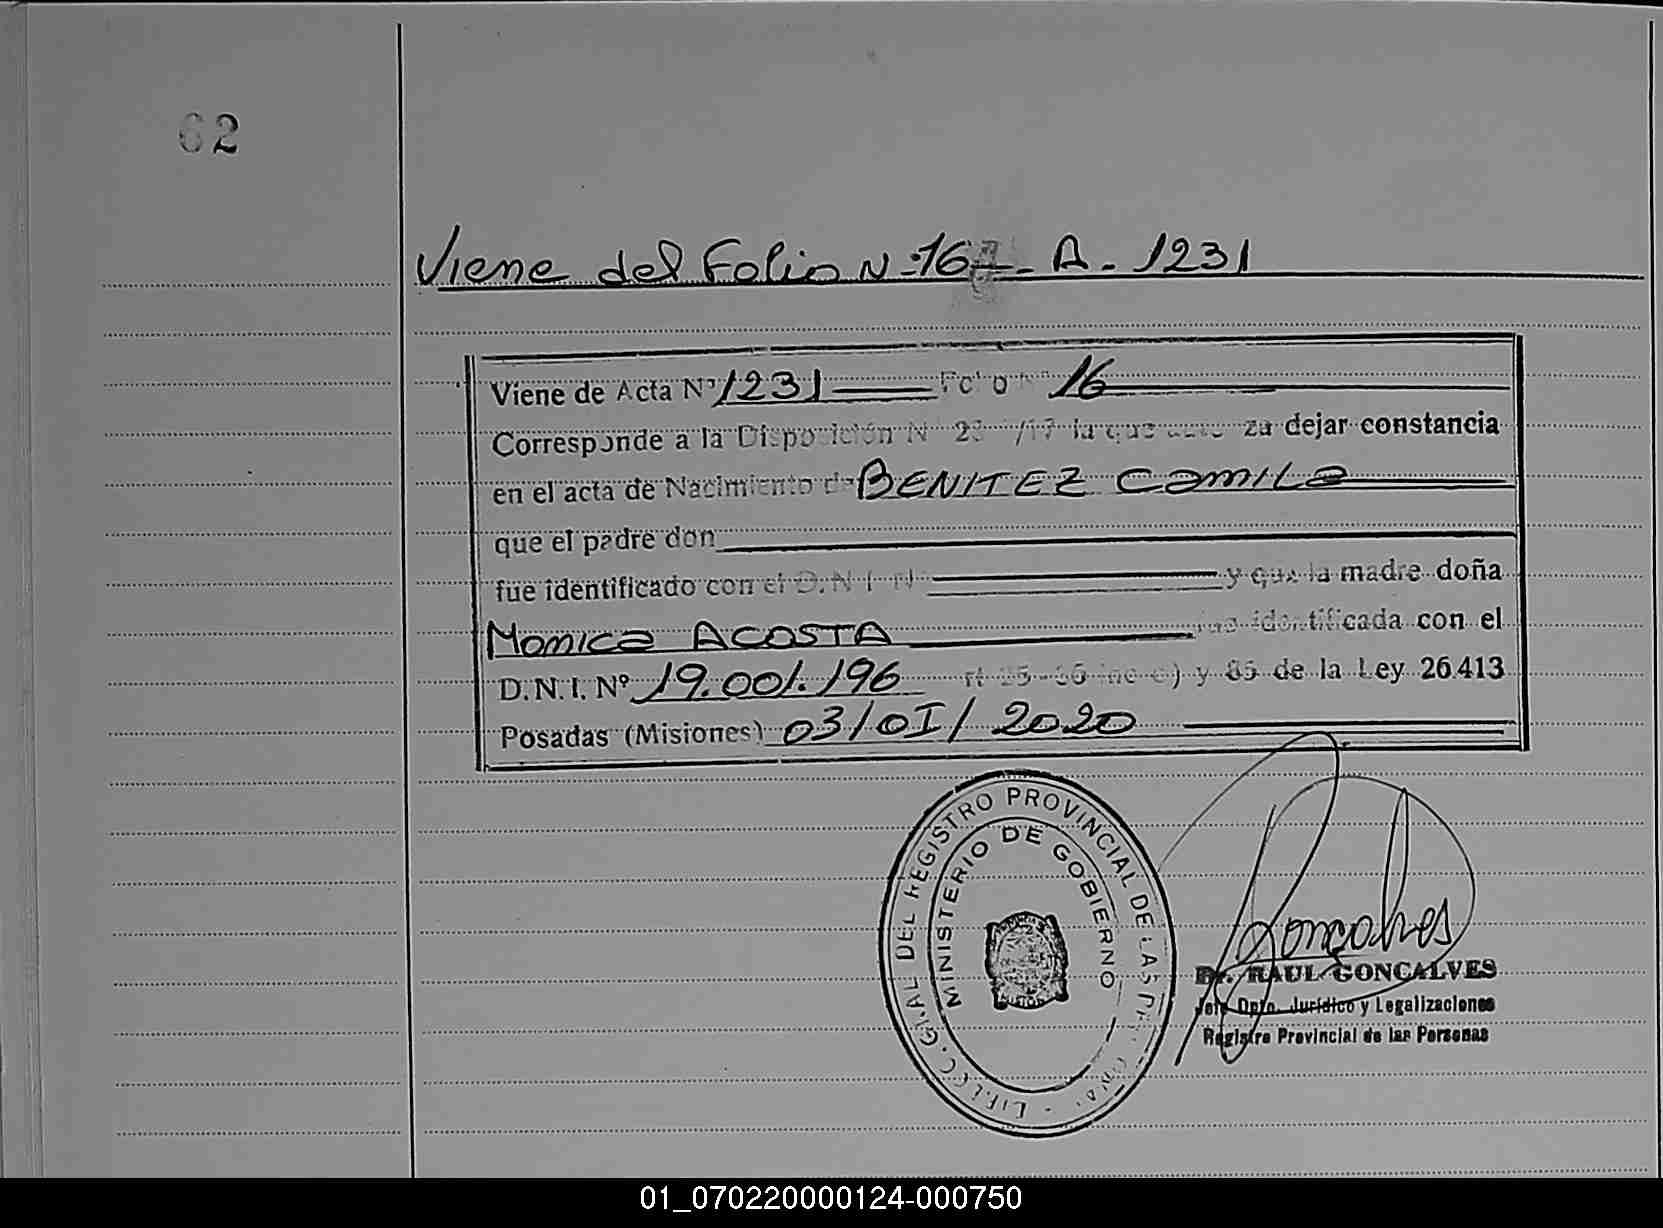 62
Viene del Folio N-16 - A - 1231
Viene de Acta Nº 1231 Folio Nº 16
Corresponde a la Disposición Nº /17 la que za dejar constancia
en el acta de Nacimiento de BENITEZ Camila
que el padre don
fue identificado con el D.N.I. Nº y que la madre doña
Monica ACOSTA fue identificada con el
D.N.I. Nº 19.001.196 y 85 de la Ley 26.413
Posadas (Misiones) 03/01/2020
REGISTRO PROVINCIAL DE LAS
GRAL DEL
MINISTERIO DE GOBIERNO
Goncalves
Dr. RAUL GONCALVES
Jefe Dpto. Jurídico y Legalizaciones
Registro Provincial de las Personas
01_070220000124-000750